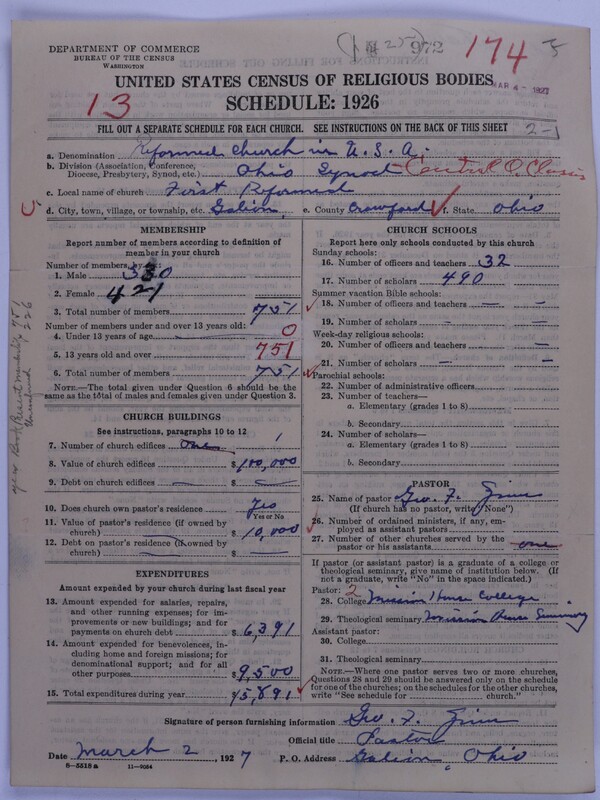 DEPARTMENT OF COMMERCE
BUREAU OF THE CENSUS
WASHINGTON
972
174
MAR 4 - 1927
13
UNITED STATES CENSUS OF RELIGIOUS BODIES
SCHEDULE: 1926
FILL OUT A SEPARATE SCHEDULE FOR EACH CHURCH. SEE INSTRUCTIONS ON THE BACK OF THIS SHEET
2-1
a. Denomination Reformed Church in U. S. A.
b. Division (Association, Conference, Diocese, Presbytery, Synod, etc.) Ohio Synod Central O. Classis
c. Local name of church First Reformed
d. City, town, village, or township, etc. Galion, e. County Crawford f. State Ohio
MEMBERSHIP
Report number of members according to definition of
member in your church
Number of members, by sex:
1. Male 330
2. Female 421
3. Total number of members 751
Number of members under and over 13 years old:
4. Under 13 years of age 0
5. 13 years old and over 751
6. Total number of members 751
NOTE.—The total given under Question 6 should be
same as the total of males and females given under Question 3.
CHURCH BUILDINGS
See instructions, paragraphs 10 to 12
7. Number of church edifices one 1
8. Value of church edifices $100,000
9. Debt on church edifices $ —
10. Does church own pastor's residence Yes
Yes or No
11. Value of pastor's residence (if owned by
church) $10,000
12. Debt on pastor's residence (if owned by
church) — $ —
EXPENDITURES
Amount expended by your church during last fiscal year
13. Amount expended for salaries, repairs,
and other running expenses; for im-
provements or new buildings; and for
payments on church debt $6,391
14. Amount expended for benevolences, in-
cluding home and foreign missions; for
denominational support; and for all
other purposes $9,500
15. Total expenditures during year 15,891
CHURCH SCHOOLS
Report here only schools conducted by this church
Sunday schools:
16. Number of officers and teachers 32
17. Number of scholars 490
Summer vacation Bible schools:
18. Number of officers and teachers — —
19. Number of scholars — —
Week-day religious schools:
20. Number of officers and teachers —
21. Number of scholars — —
Parochial schools:
22. Number of administrative officers
23. Number of teachers—
a. Elementary (grades 1 to 8)
b. Secondary
24. Number of scholars—
a. Elementary (grades 1 to 8)
b. Secondary
PASTOR
25. Name of pastor Geo. F.
(If church has no pastor, write "None")
26. Number of ordained ministers, if any, em-
ployed as assistant pastors
27. Number of other churches served by the
pastor or his assistants one
If pastor (or assistant pastor) is a graduate of a college or
theological seminary, give name of institution below. (If
not a graduate, write "No" in the space indicated.)
Pastor: 2
28. College Mission House College
29. Theological seminary Mission House Seminary
Assistant pastor:
30. College
31. Theological seminary
NOTE.—Where one pastor serves two or more churches,
Questions 28 and 29 should be answered only on the schedule
for one of the churches; on the schedules for the other churches,
write "See schedule for church."
Signature of person furnishing information Geo. F.
Official title Pastor
Date March 2, 1927 P. O. Address Galion, Ohio
6-5518 a 11-9064